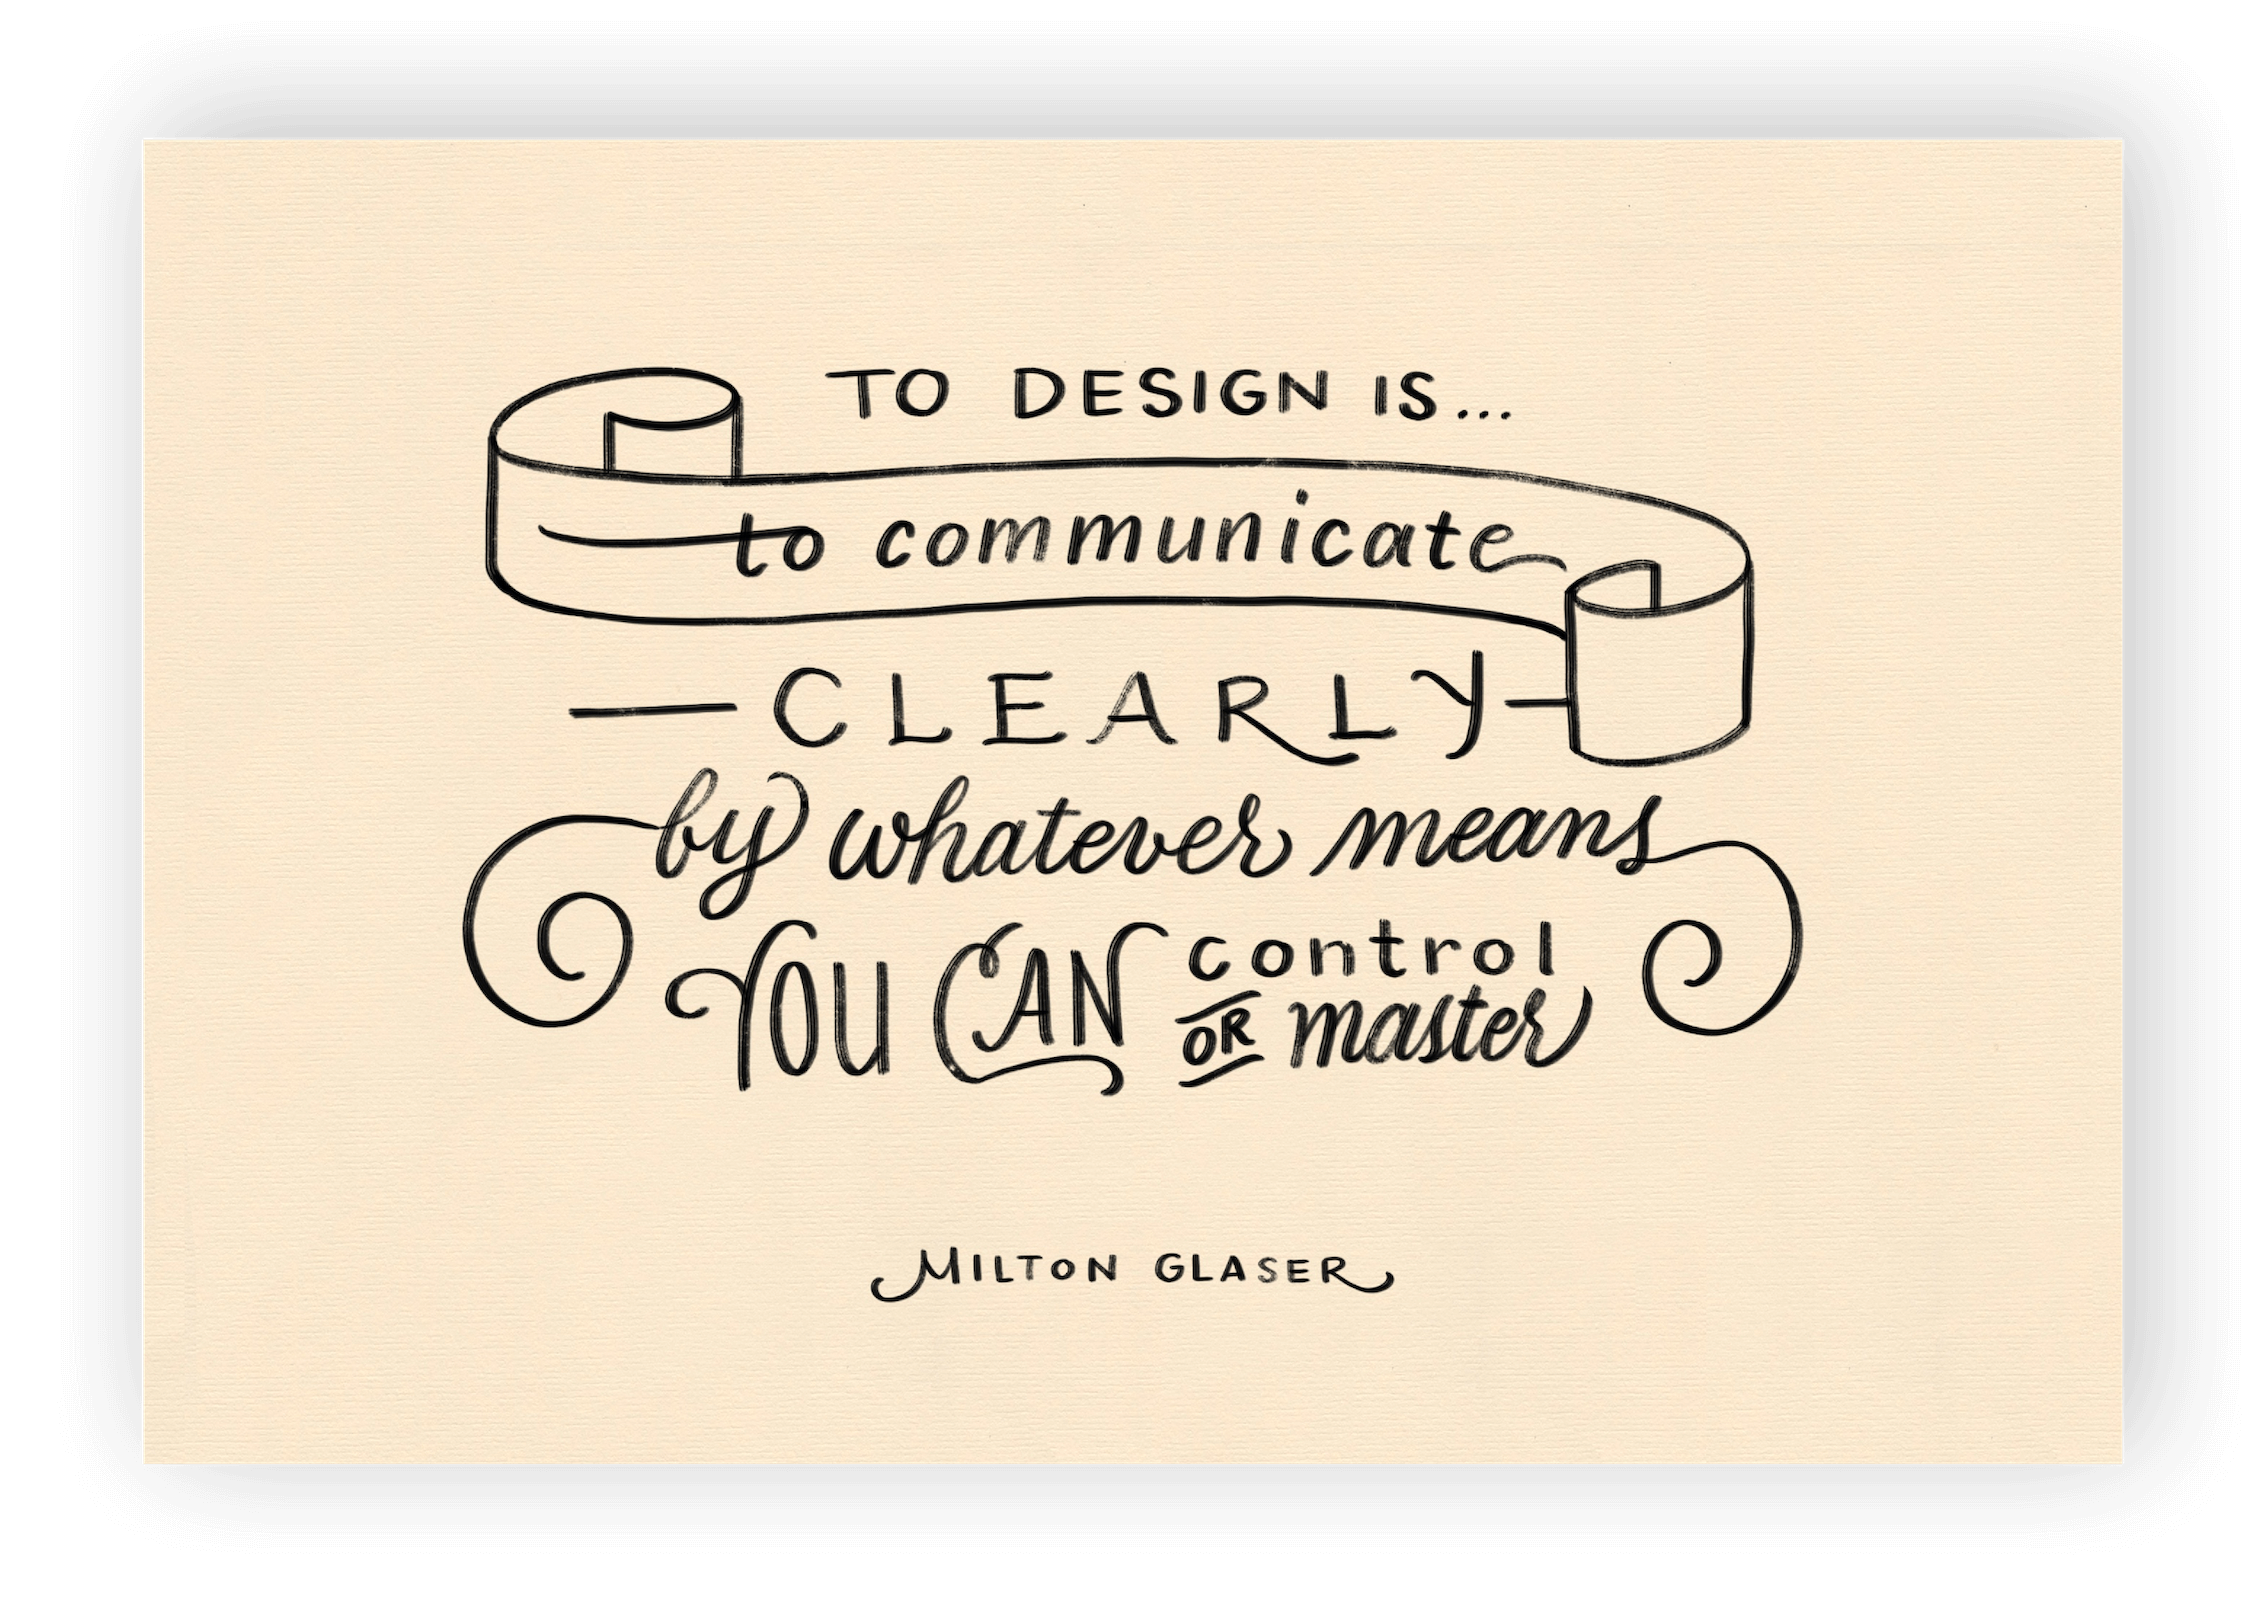 TO DESIGN IS...
to communicate
CLEARLY
by whatever means
YOU CAN control
OR master
MILTON GLASER